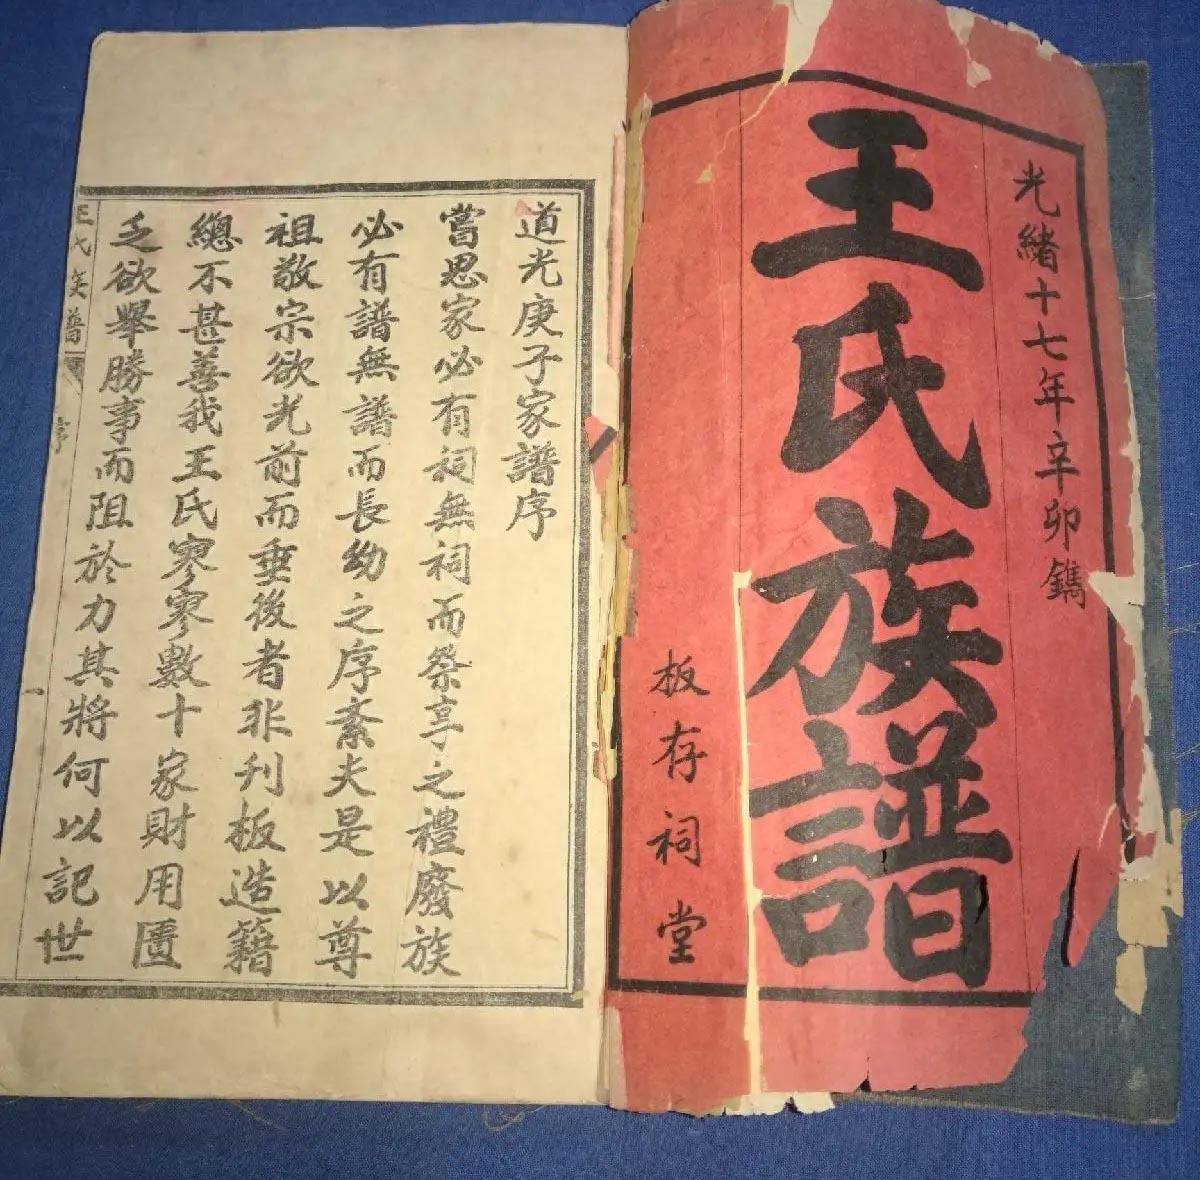 光緒十七年辛卯鐫
王氏族譜
板存祠堂
道光庚子家譜序
嘗思家必有祠無祠而祭享之禮廢族
必有譜無譜而長幼之序紊夫是以尊
祖敬宗欲光前而垂後者非刋板造籍
總不甚善我王氏寥寥數十家財用匱
乏欲舉勝事而阻於力其將何以記世
王氏族譜
序